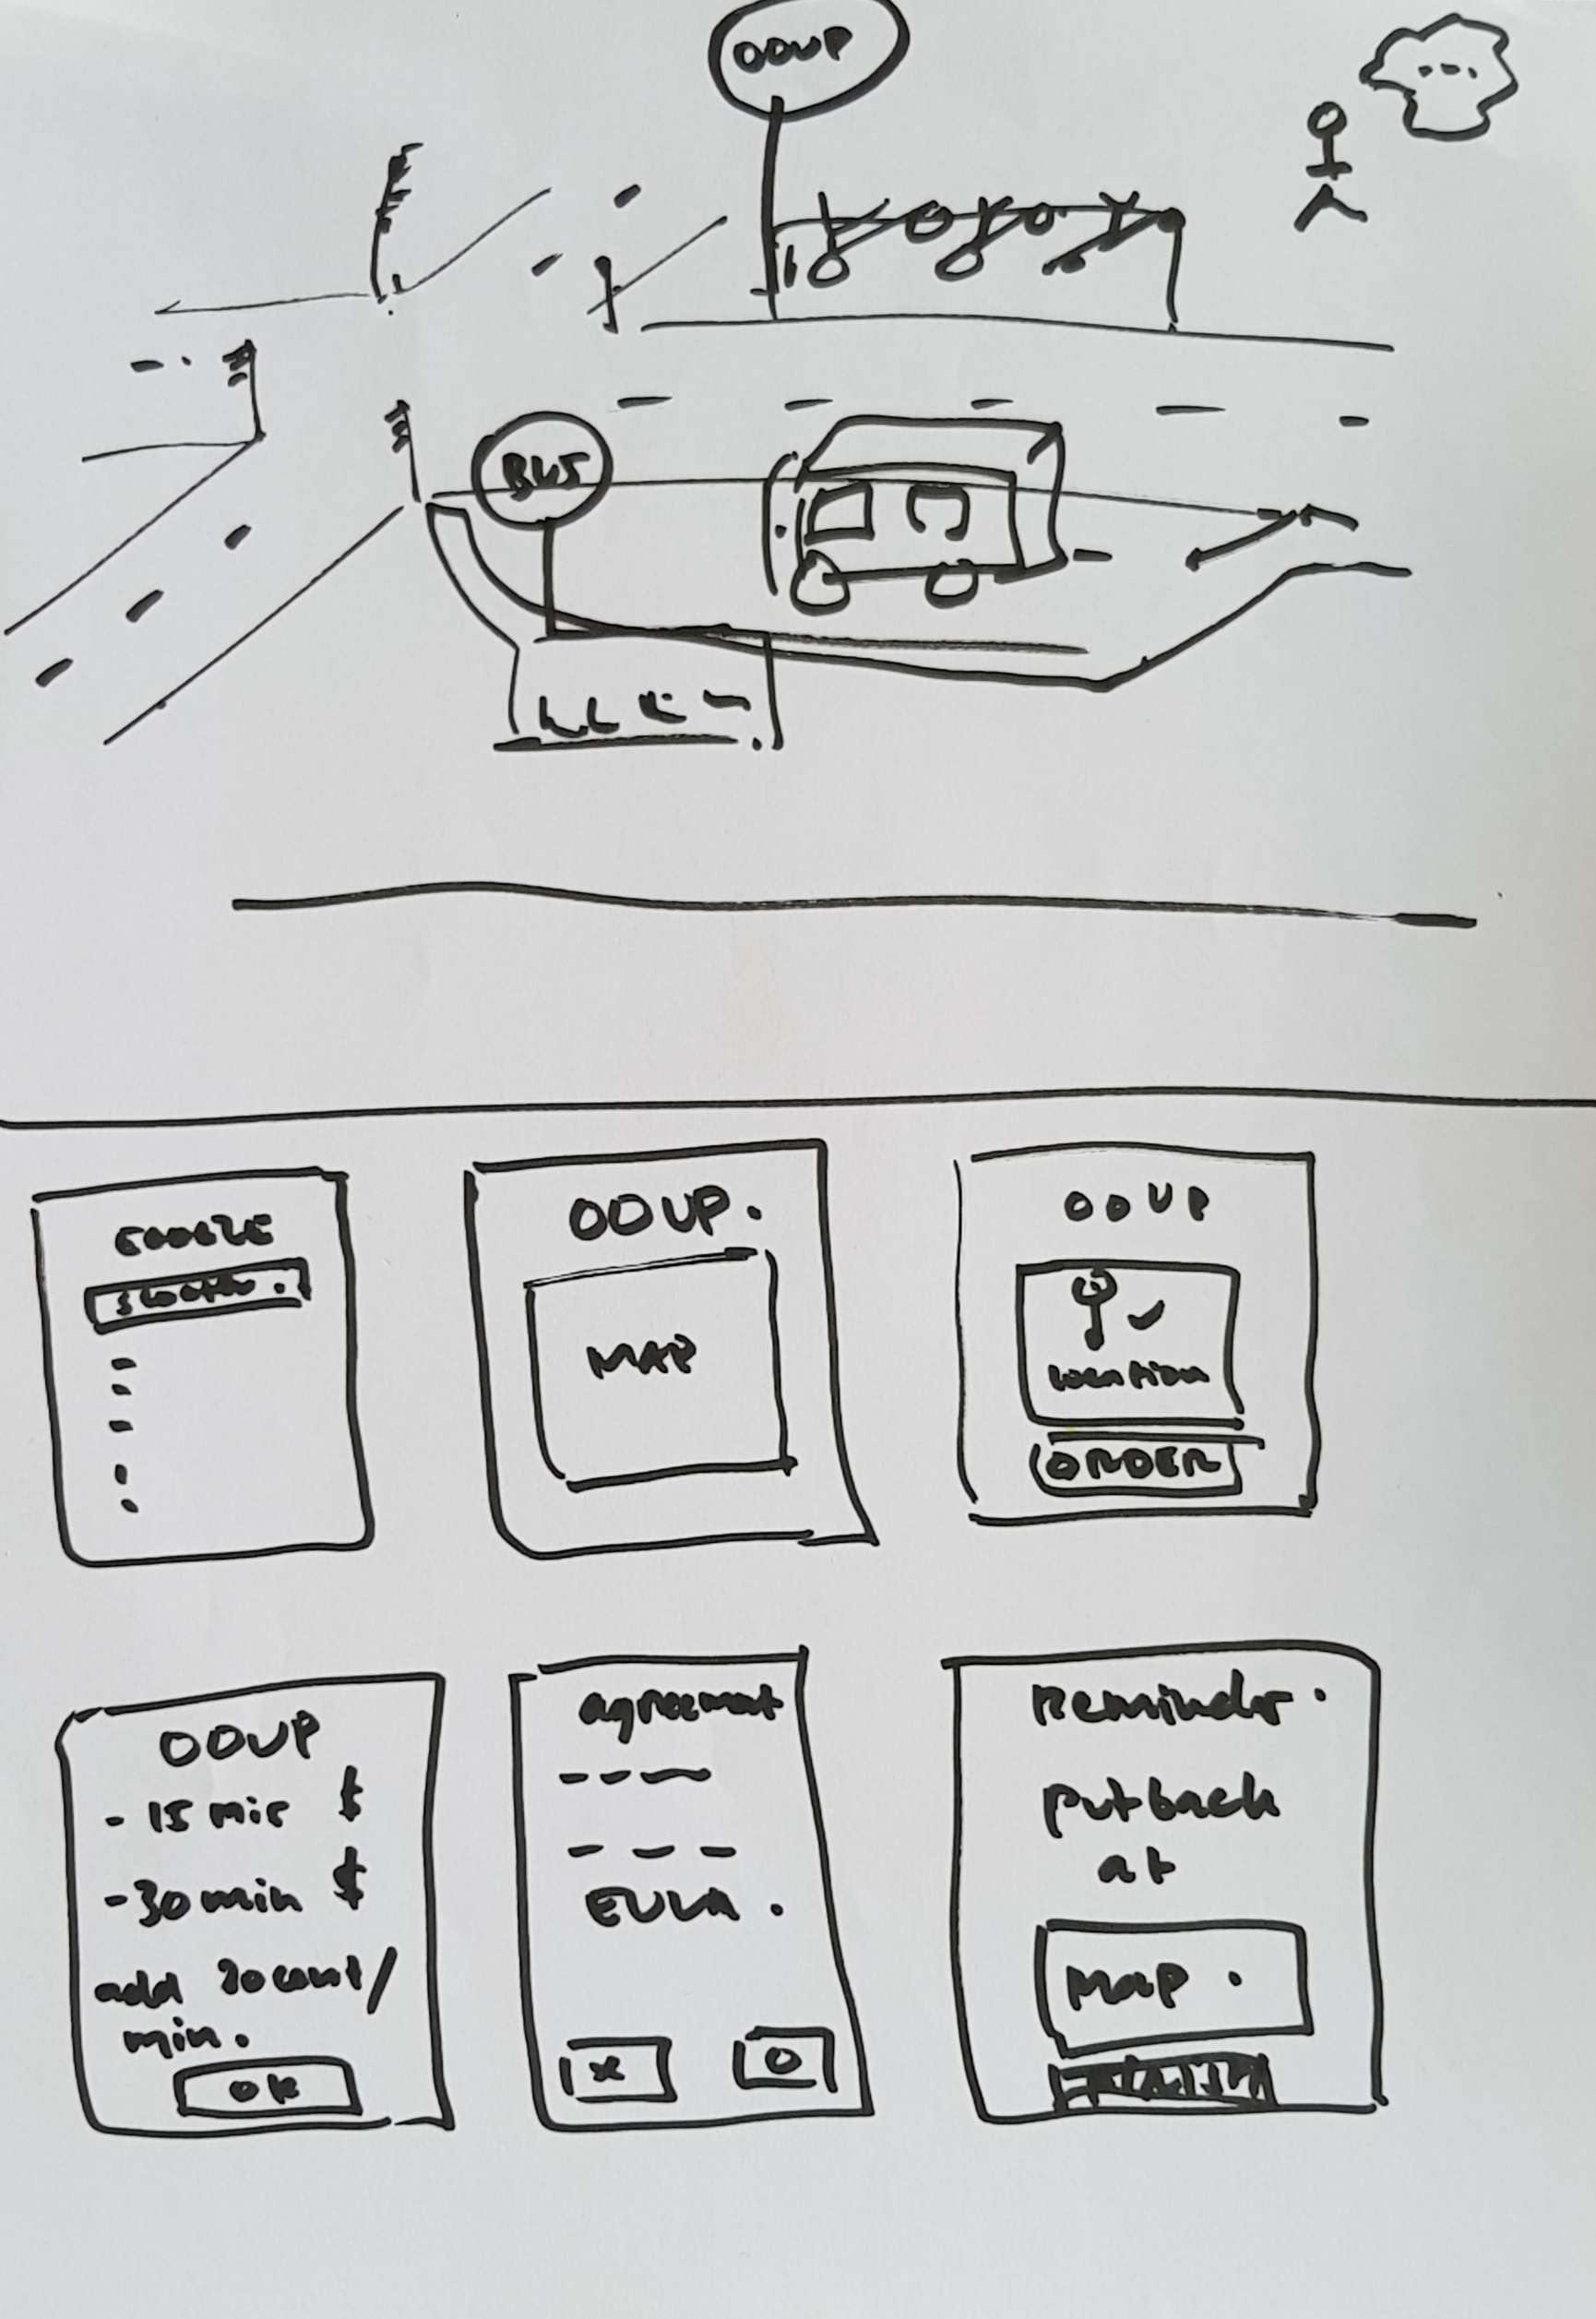 OOUP
BUS
GOOGLE
OOUP.
MAP
OOUP
location
ORDER
OOUP
- 15 min $
- 30 min $
add 20 cent/
min.
OK
agreement
EULA.
X
O
Reminder.
put back
at
Map.